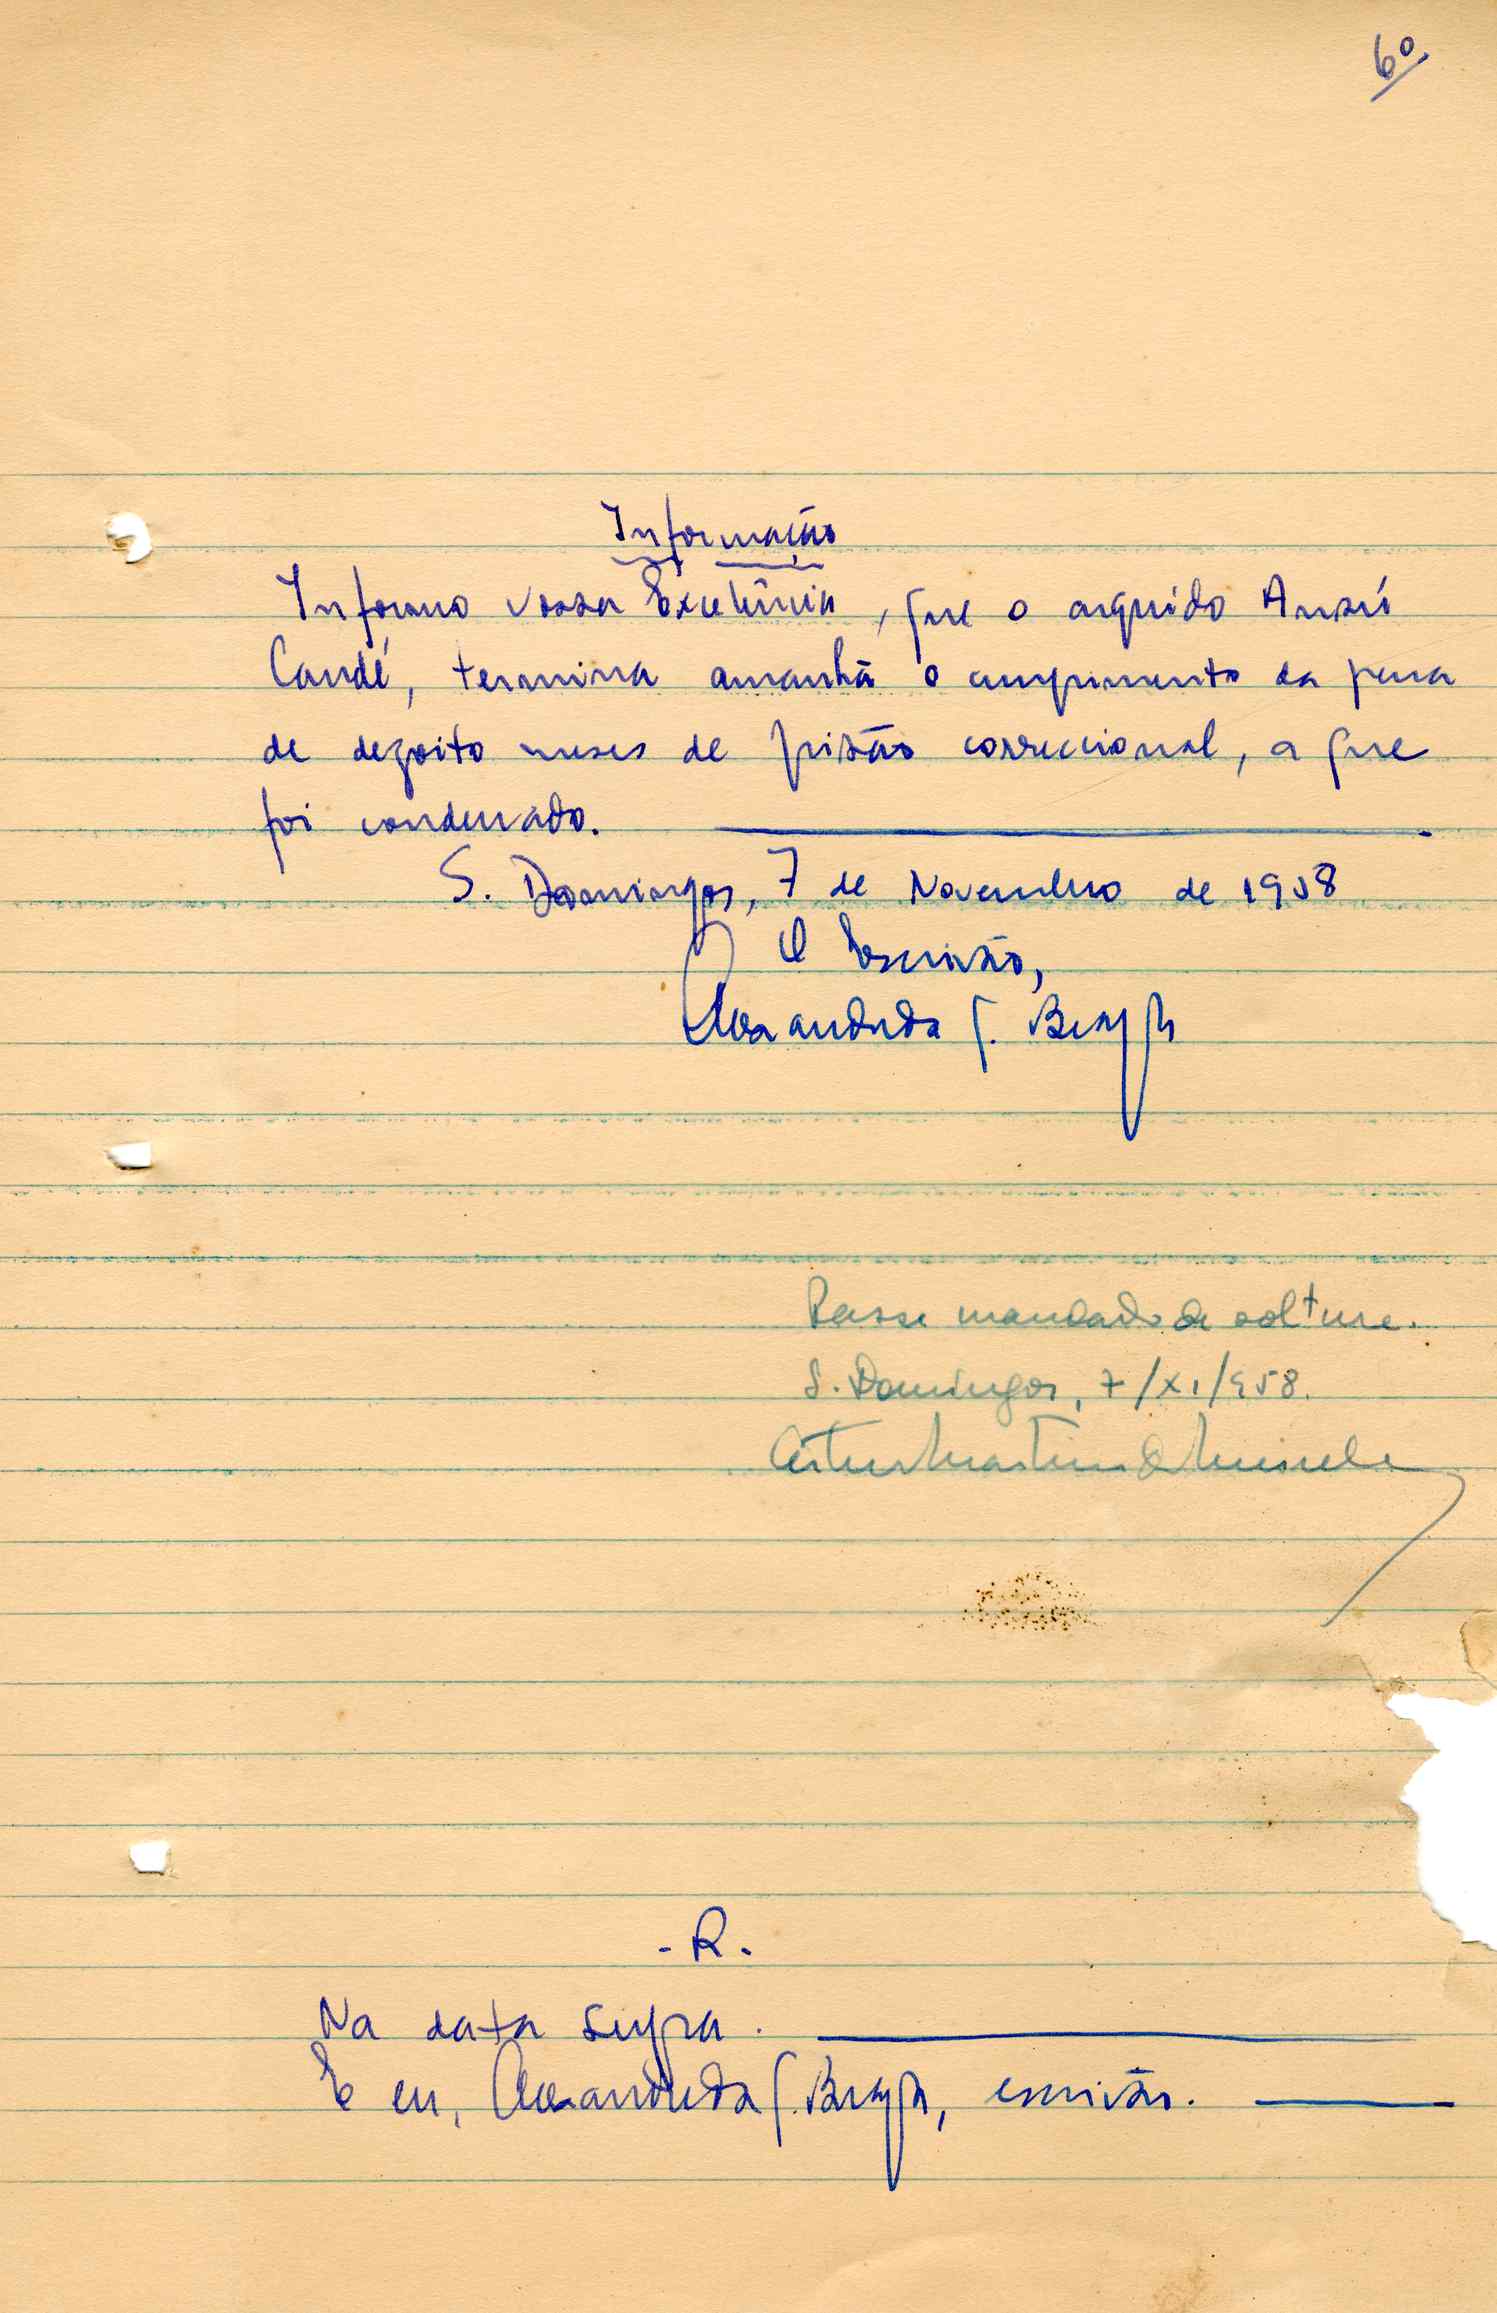 60
Informação
Informo Vossa Excelência, que o arguido Ansú
Candé, termina amanhã o cumprimento da pena
de dezoito meses de prisão correccional, a que
foi condenado.
S. Domingos, 7 de Novembro de 1958
O Escrivão,
Passe mandado de soltura.
S. Domingos, 7/XI/958.
Artur Martins de Meireles
- R.
Na data supra.
E eu, escrivão.